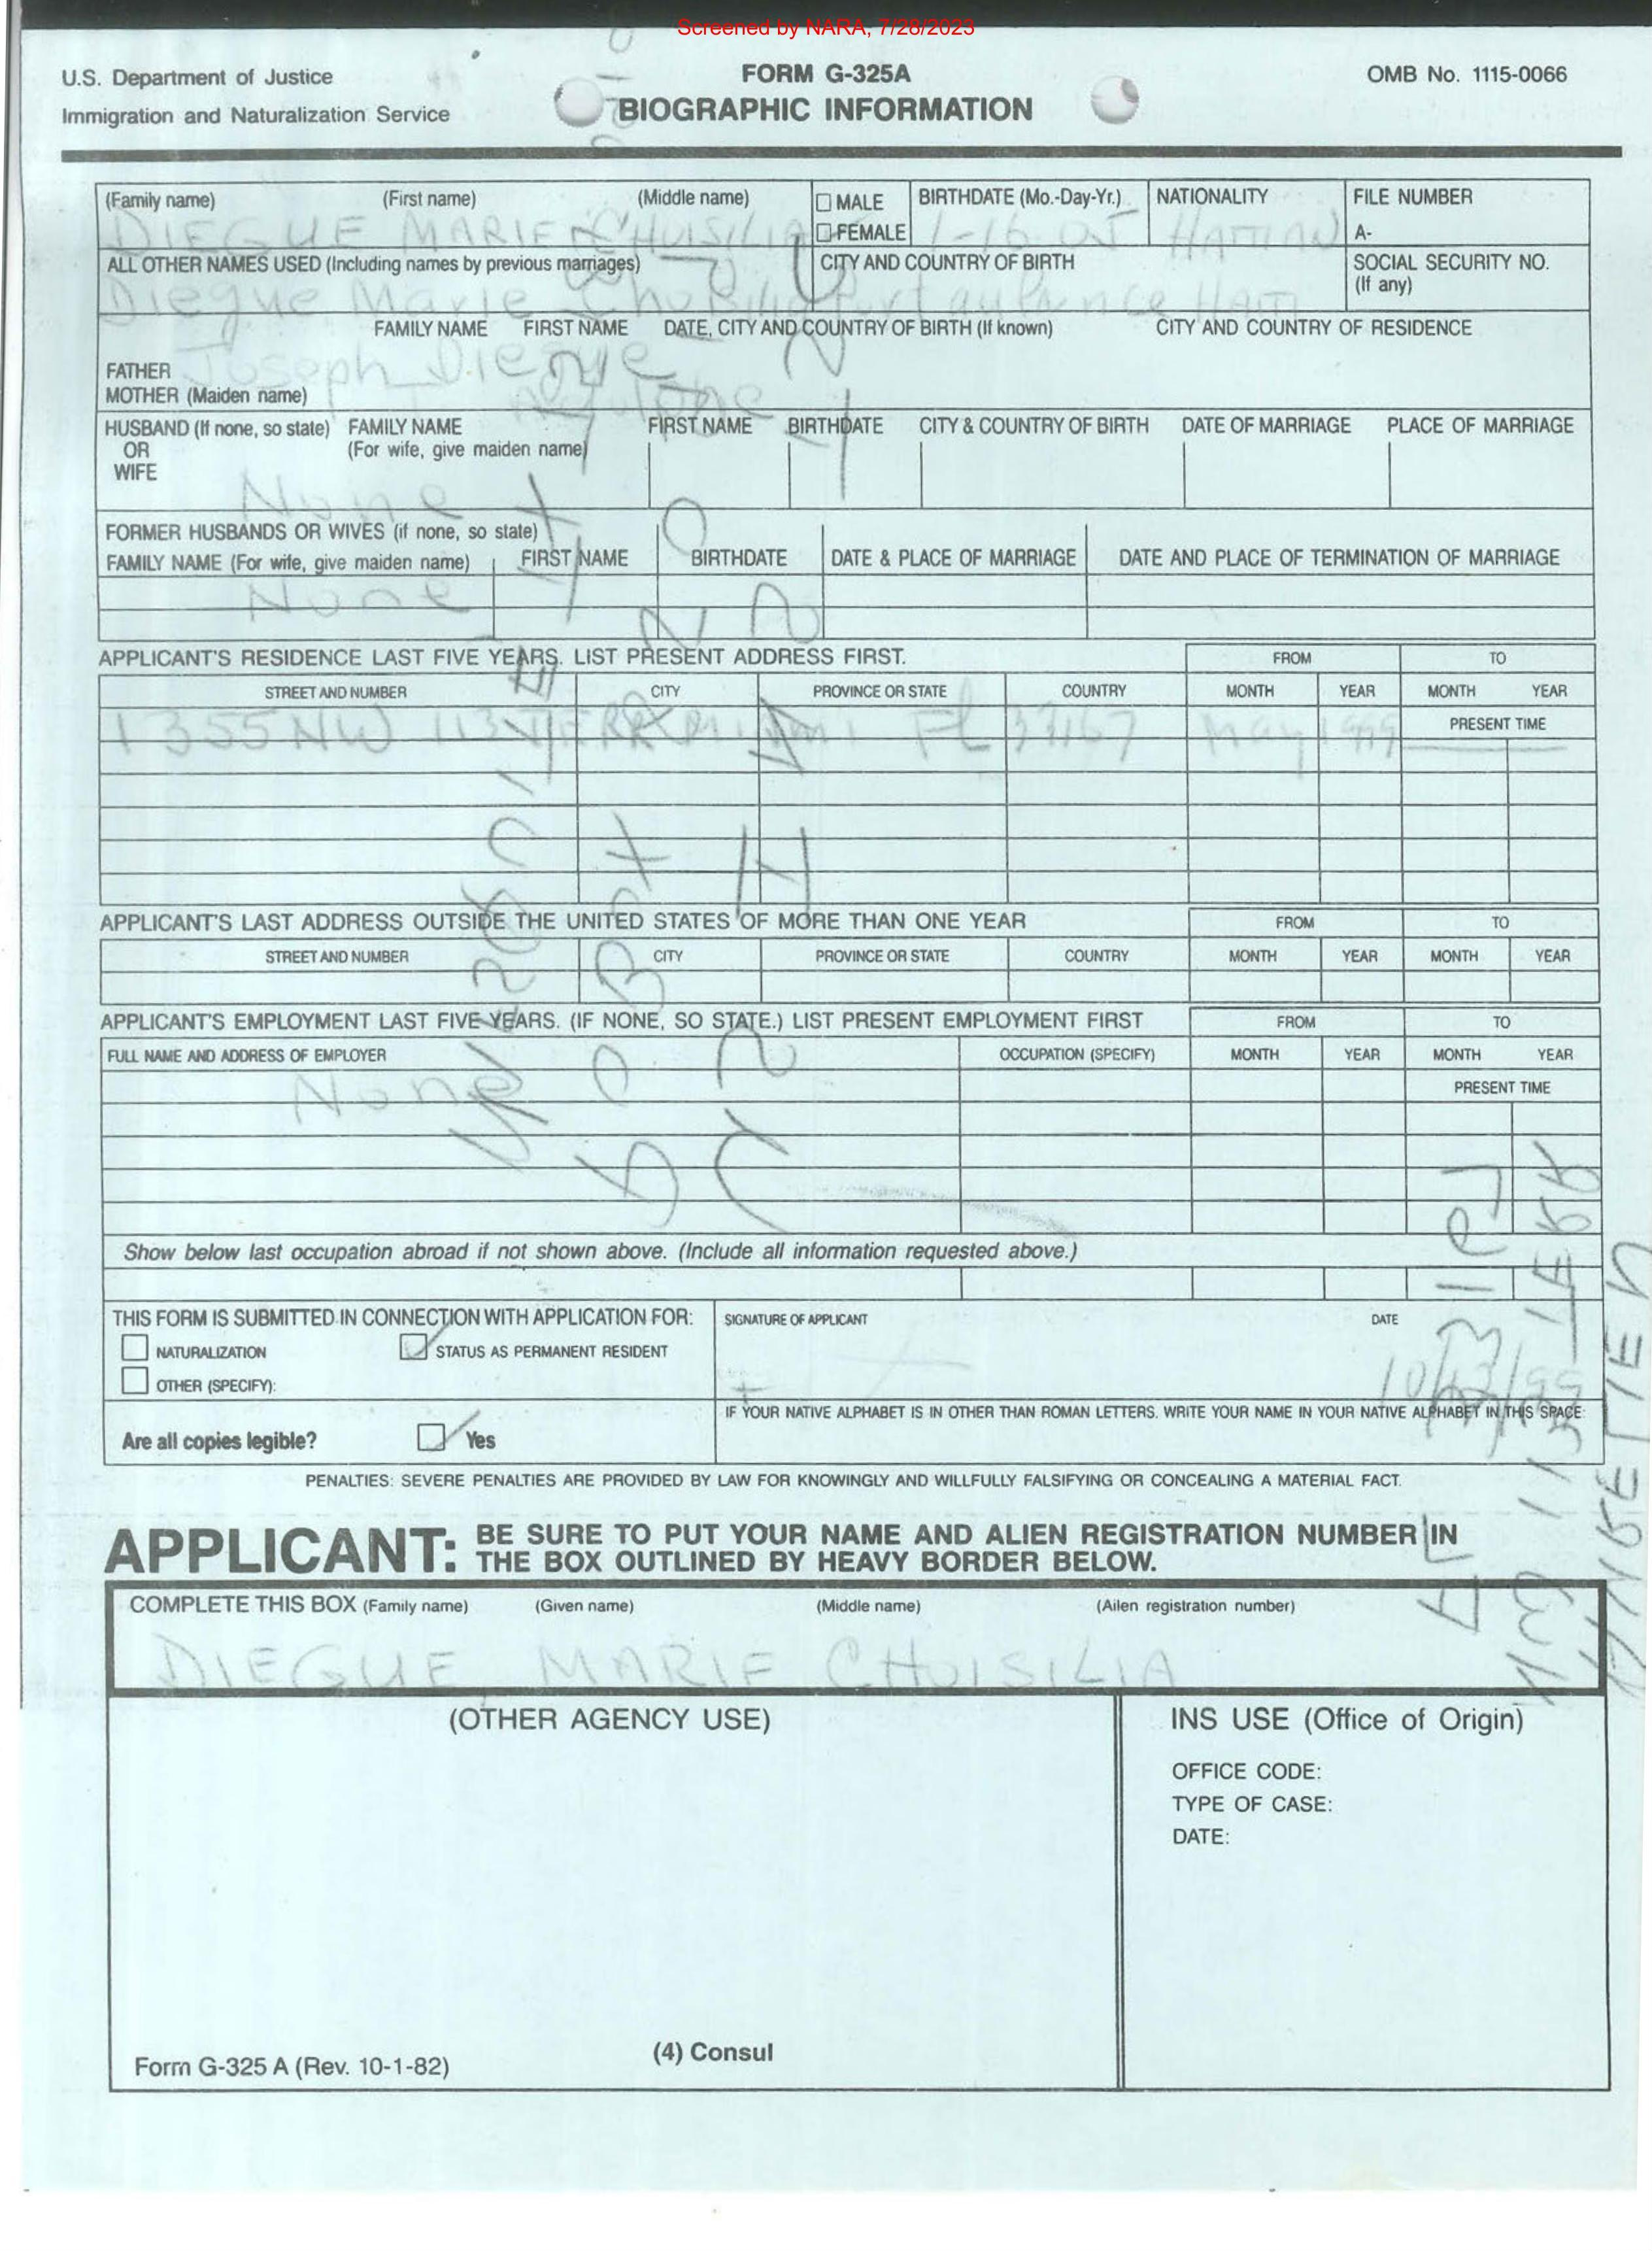 Screened by NARA, 7/28/2023
U.S. Department of Justice
Immigration and Naturalization Service
FORM G-325A
BIOGRAPHIC INFORMATION
OMB No. 1115-0066
(Family name) (First name) (Middle name) MALE BIRTHDATE (Mo.-Day-Yr.) NATIONALITY FILE NUMBER
DIEGUE MARIE FEMALE HAITIAN A-
ALL OTHER NAMES USED (Including names by previous marriages) CITY AND COUNTRY OF BIRTH SOCIAL SECURITY NO.
(If any)
Diegue Marie
FAMILY NAME FIRST NAME DATE, CITY AND COUNTRY OF BIRTH (If known) CITY AND COUNTRY OF RESIDENCE
FATHER Joseph Diegue
MOTHER (Maiden name)
HUSBAND (If none, so state) FAMILY NAME FIRST NAME BIRTHDATE CITY & COUNTRY OF BIRTH DATE OF MARRIAGE PLACE OF MARRIAGE
OR (For wife, give maiden name)
WIFE
None
FORMER HUSBANDS OR WIVES (if none, so state)
FAMILY NAME (For wife, give maiden name) FIRST NAME BIRTHDATE DATE & PLACE OF MARRIAGE DATE AND PLACE OF TERMINATION OF MARRIAGE
None
APPLICANT'S RESIDENCE LAST FIVE YEARS. LIST PRESENT ADDRESS FIRST. FROM TO
STREET AND NUMBER CITY PROVINCE OR STATE COUNTRY MONTH YEAR MONTH YEAR
1355 NW 113 TERR Miami FL 33167 May 1999 PRESENT TIME
APPLICANT'S LAST ADDRESS OUTSIDE THE UNITED STATES OF MORE THAN ONE YEAR FROM TO
STREET AND NUMBER CITY PROVINCE OR STATE COUNTRY MONTH YEAR MONTH YEAR
APPLICANT'S EMPLOYMENT LAST FIVE YEARS. (IF NONE, SO STATE.) LIST PRESENT EMPLOYMENT FIRST FROM TO
FULL NAME AND ADDRESS OF EMPLOYER OCCUPATION (SPECIFY) MONTH YEAR MONTH YEAR
None PRESENT TIME
Show below last occupation abroad if not shown above. (Include all information requested above.)
THIS FORM IS SUBMITTED IN CONNECTION WITH APPLICATION FOR: SIGNATURE OF APPLICANT DATE
NATURALIZATION STATUS AS PERMANENT RESIDENT
OTHER (SPECIFY):
IF YOUR NATIVE ALPHABET IS IN OTHER THAN ROMAN LETTERS. WRITE YOUR NAME IN YOUR NATIVE ALPHABET IN THIS SPACE:
Are all copies legible? Yes
PENALTIES: SEVERE PENALTIES ARE PROVIDED BY LAW FOR KNOWINGLY AND WILLFULLY FALSIFYING OR CONCEALING A MATERIAL FACT.
APPLICANT: BE SURE TO PUT YOUR NAME AND ALIEN REGISTRATION NUMBER IN
THE BOX OUTLINED BY HEAVY BORDER BELOW.
COMPLETE THIS BOX (Family name) (Given name) (Middle name) (Alien registration number)
DIEGUE MARIE CHUISILIA
(OTHER AGENCY USE) INS USE (Office of Origin)
OFFICE CODE:
TYPE OF CASE:
DATE:
(4) Consul
Form G-325 A (Rev. 10-1-82)